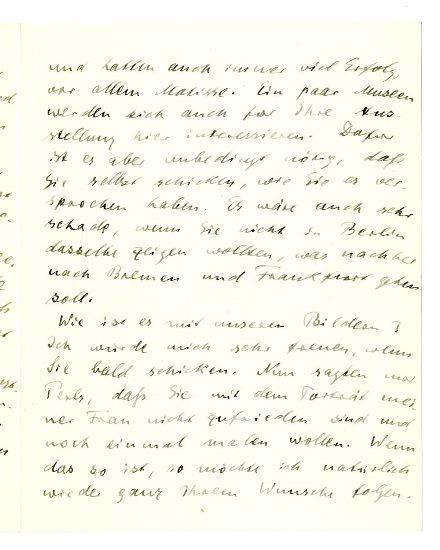 und hatten auch immer viel Erfolg,
vor allem Matisse. Ein paar Museen
werden sich auch für Ihre Aus-
stellung hier interessieren. Dafür
ist es aber unbedingt nötig, daß
Sie selbst schicken, wie Sie es ver-
sprochen haben. Es wäre auch sehr
schade, wenn Sie nicht in Berlin
dasselbe zeigen wollten, was nachher
nach Bremen und Frankfurt gehen
soll.
Wie ist es mit unseren Bildern?
Ich würde mich sehr freuen, wenn
Sie bald schicken. Nun sagten mir
Perls, daß Sie mit dem Porträt mei
ner Frau nicht zufrieden sind und
noch einmal malen wollen. Wenn
das so ist, so möchte ich natürlich
wieder ganz Ihrem Wunsche folgen.